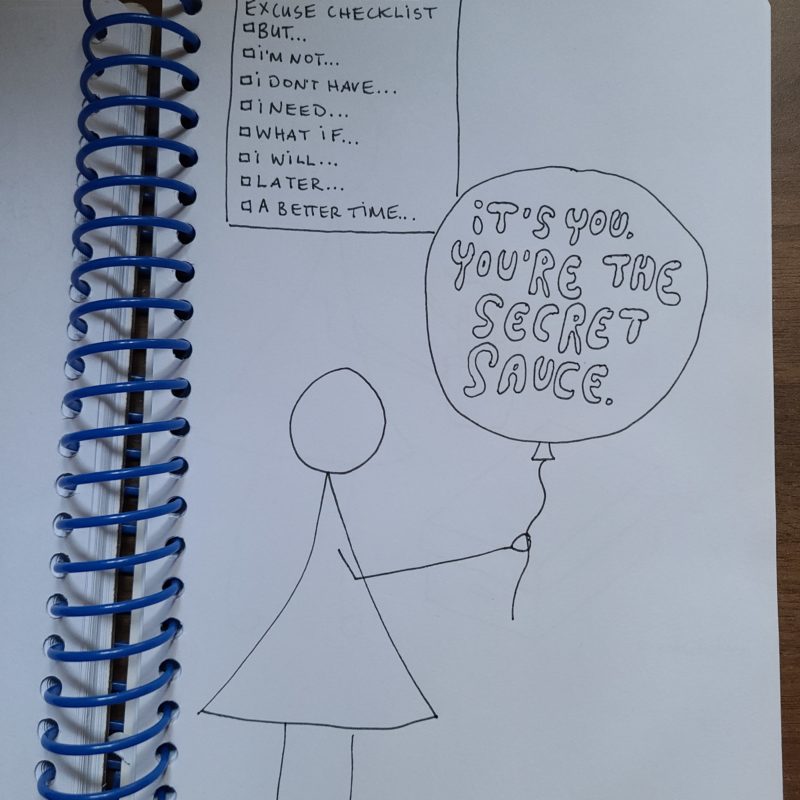 EXCUSE CHECKLIST
BUT...
i'M NOT...
i DON'T HAVE...
i NEED...
WHAT iF...
i WILL...
LATER...
A BETTER TiME...
iT'S YOU.
YOU'RE THE
SECRET
SAUCE.